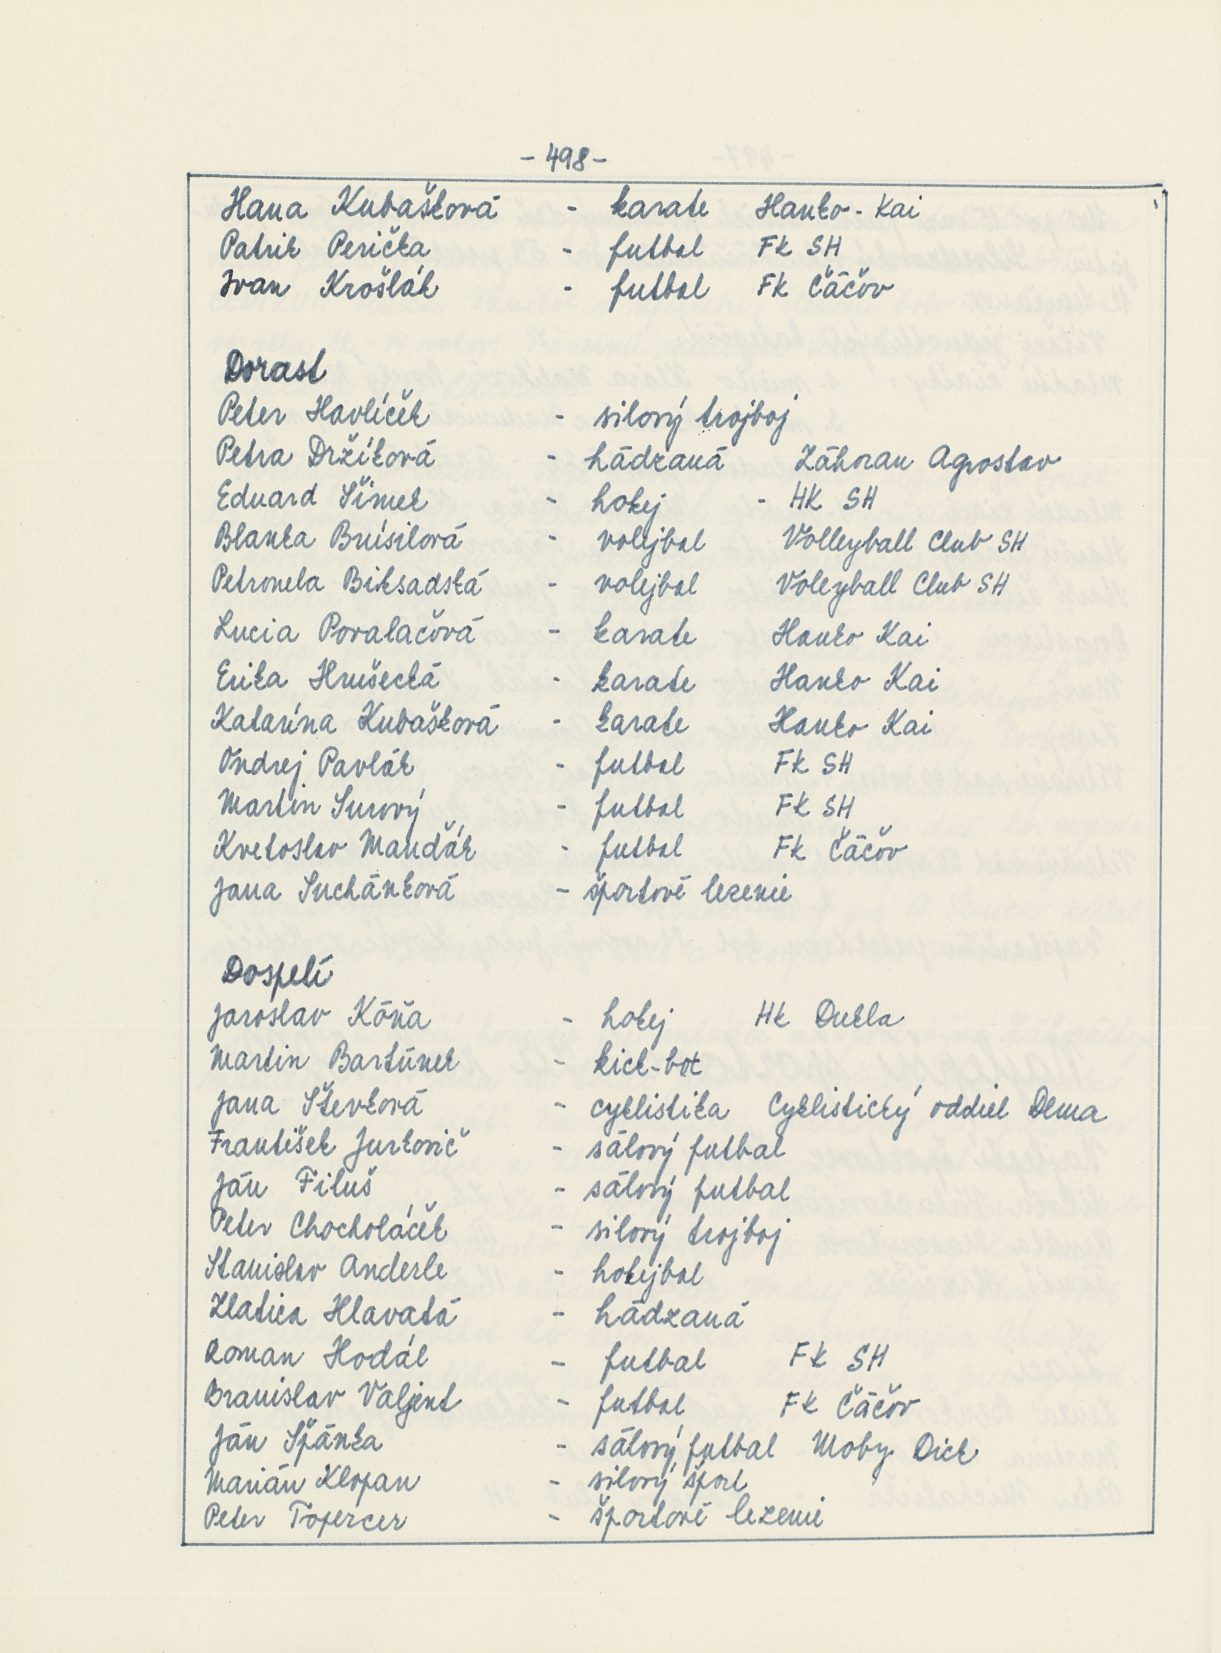 - 498 -
Hana Kubašková - karate Hanko - Kai
Patrik Perička - futbal FK SH
Ivan Krošlák - futbal FK Čáčov
Dorast
Peter Havlíček - silový trojboj
Petra Držíková - hádzaná Záhoran Agrostav
Eduard Šimek - hokej - HK SH
Blanka Bruisilová - volejbal Volleyball Club SH
Petronela Biksadská - volejbal Voleyball Club SH
Lucia Povalačová - karate Hanko Kai
Erika Hrušecká - karate Hanko Kai
Katarína Kubašková - karate Hanko Kai
Ondrej Pavlák - futbal FK SH
Martin Surový - futbal FK SH
Kvetoslav Mandák - futbal FK Čáčov
Jana Suchánková - športové lezenie
Dospelí
Jaroslav Kóňa - hokej HK Dukla
Martin Bartůnek - kick-box
Jana Števková - cyklistika Cyklistický oddiel Dema
František Jurkovič - sálový futbal
Ján Filuš - sálový futbal
Peter Chocholáček - silový trojboj
Stanislav Anderle - hokejbal
Zlatica Hlavatá - hádzaná
Roman Hodál - futbal FK SH
Branislav Valjent - futbal FK Čáčov
Ján Špánka - sálový futbal Moby Dick
Marián Klopan - silový šport
Peter Topercer - športové lezenie